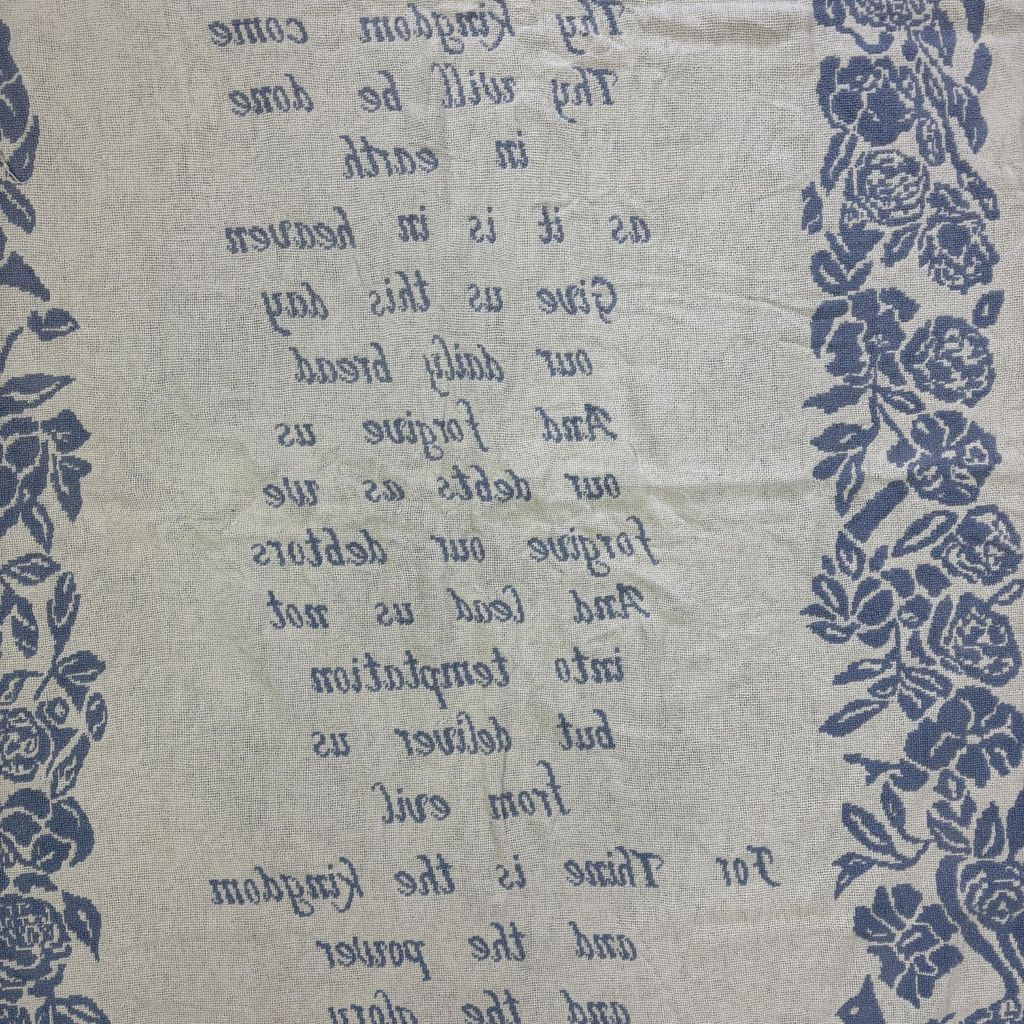 Thy kingdom come
Thy will be done
in earth
as it is in heaven
Give us this day
our daily bread
And forgive us
our debts as we
forgive our debtors
And lead us not
into temptation
but deliver us
from evil
For Thine is the kingdom
and the power
and the glory